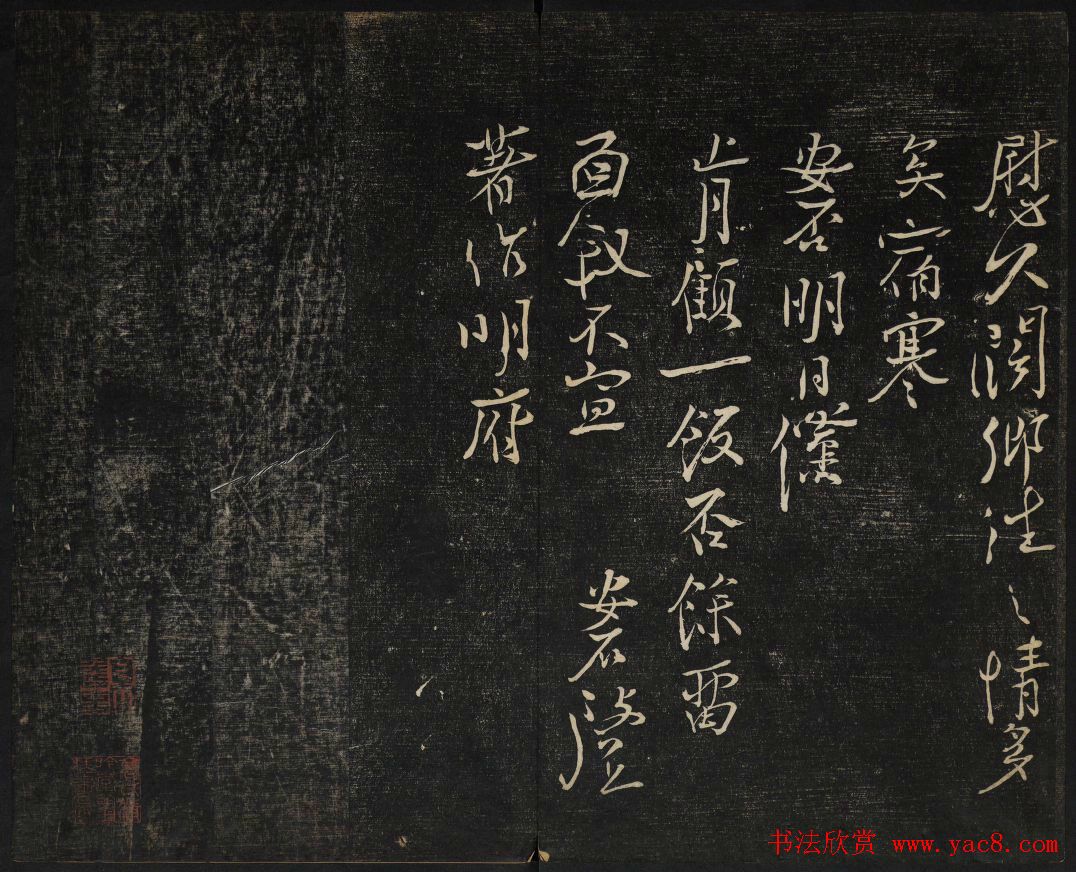 慰久闊鄉往之情多
矣宿寒
安否明日儻
肯顧一飯否餘留
面敘不宣 安石
著作明府
书法欣赏 www.yac8.com